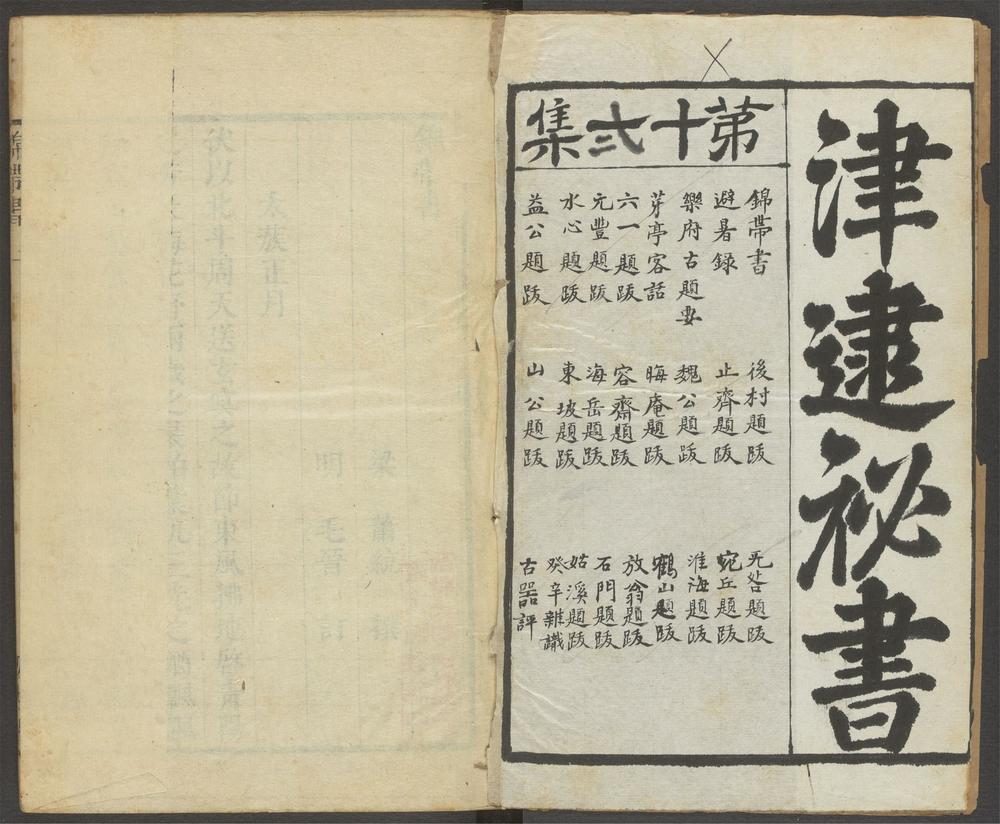 津逮祕書
苐十弍集
錦帶書
避暑録
樂府古題要
芽亭客話
六一題跋
元豐題跋
水心題跋
益公題跋
後村題跋
止齊題跋
魏公題跋
晦庵題跋
容齋題跋
海岳題跋
東坡題跋
山公題跋
无咎題跋
宛丘題跋
淮海題跋
鶴山題跋
放翁題跋
石門題跋
姑溪題跋
癸辛雜識
古器評
梁 蕭統
明 毛晉 訂
太蔟正月